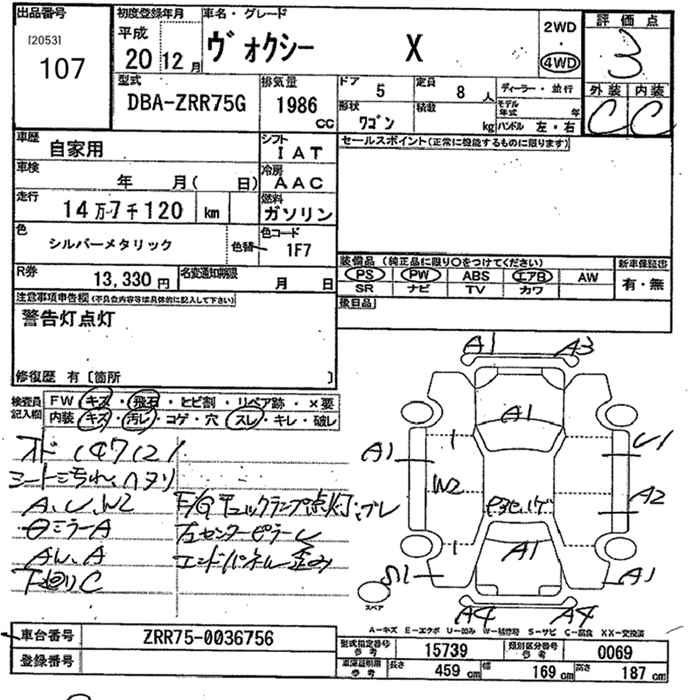 出品番号
[2053]
107
初度登録年月
平成
20 12 月
車名・グレード
ヴォクシー X
2WD
・
4WD
評価点
3
外装 内装
C C
型式
DBA-ZRR75G
排気量
1986
CC
ドア
5
定員
8 人
形状
ワゴン
積載
kg
ディーラー・並行
モデル年式 年
ハンドル 左・右
車歴
自家用
シフト
IAT
車検
年 月( 日)
冷房
AAC
走行
14万7千120 km
燃料
ガソリン
色
シルバーメタリック
色替
色コード
1F7
R券
13,330円
名変通知期限
月 日
セールスポイント(正常に機能するものに限ります)
装備品(純正品に限り〇をつけてください)
PS PW ABS エアB AW
SR ナビ TV カワ
新車保証書
有・無
後日品
注意事項申告欄(不具合内容等は具体的に記入して下さい)
警告灯点灯
修復歴 有〔箇所 〕
検査員記入欄
FW キズ・飛石・ヒビ割・リペア跡・×要
内装 キズ・汚レ・コゲ・穴 スレ・キレ・破レ
オド 147121
シート汚れ、ヘタリ
A、U、W2
ミラーA
AW、A
下廻りC
F/Gチェックランプ点灯
センターピラー
エンドパネル歪み
A1 A3
A1
A1 U1
W2 A2
A1
A1
A4 A4
スペア
A-キズ E-エクボ U-凹み W-補修跡 S-サビ C-腐食 XX-交換済
車台番号
ZRR75-0036756
登録番号
型式指定番号 参考
15739
類別区分番号 参考
0069
車庫証明用 参考
長さ 459 cm 幅 169 cm 高さ 187 cm